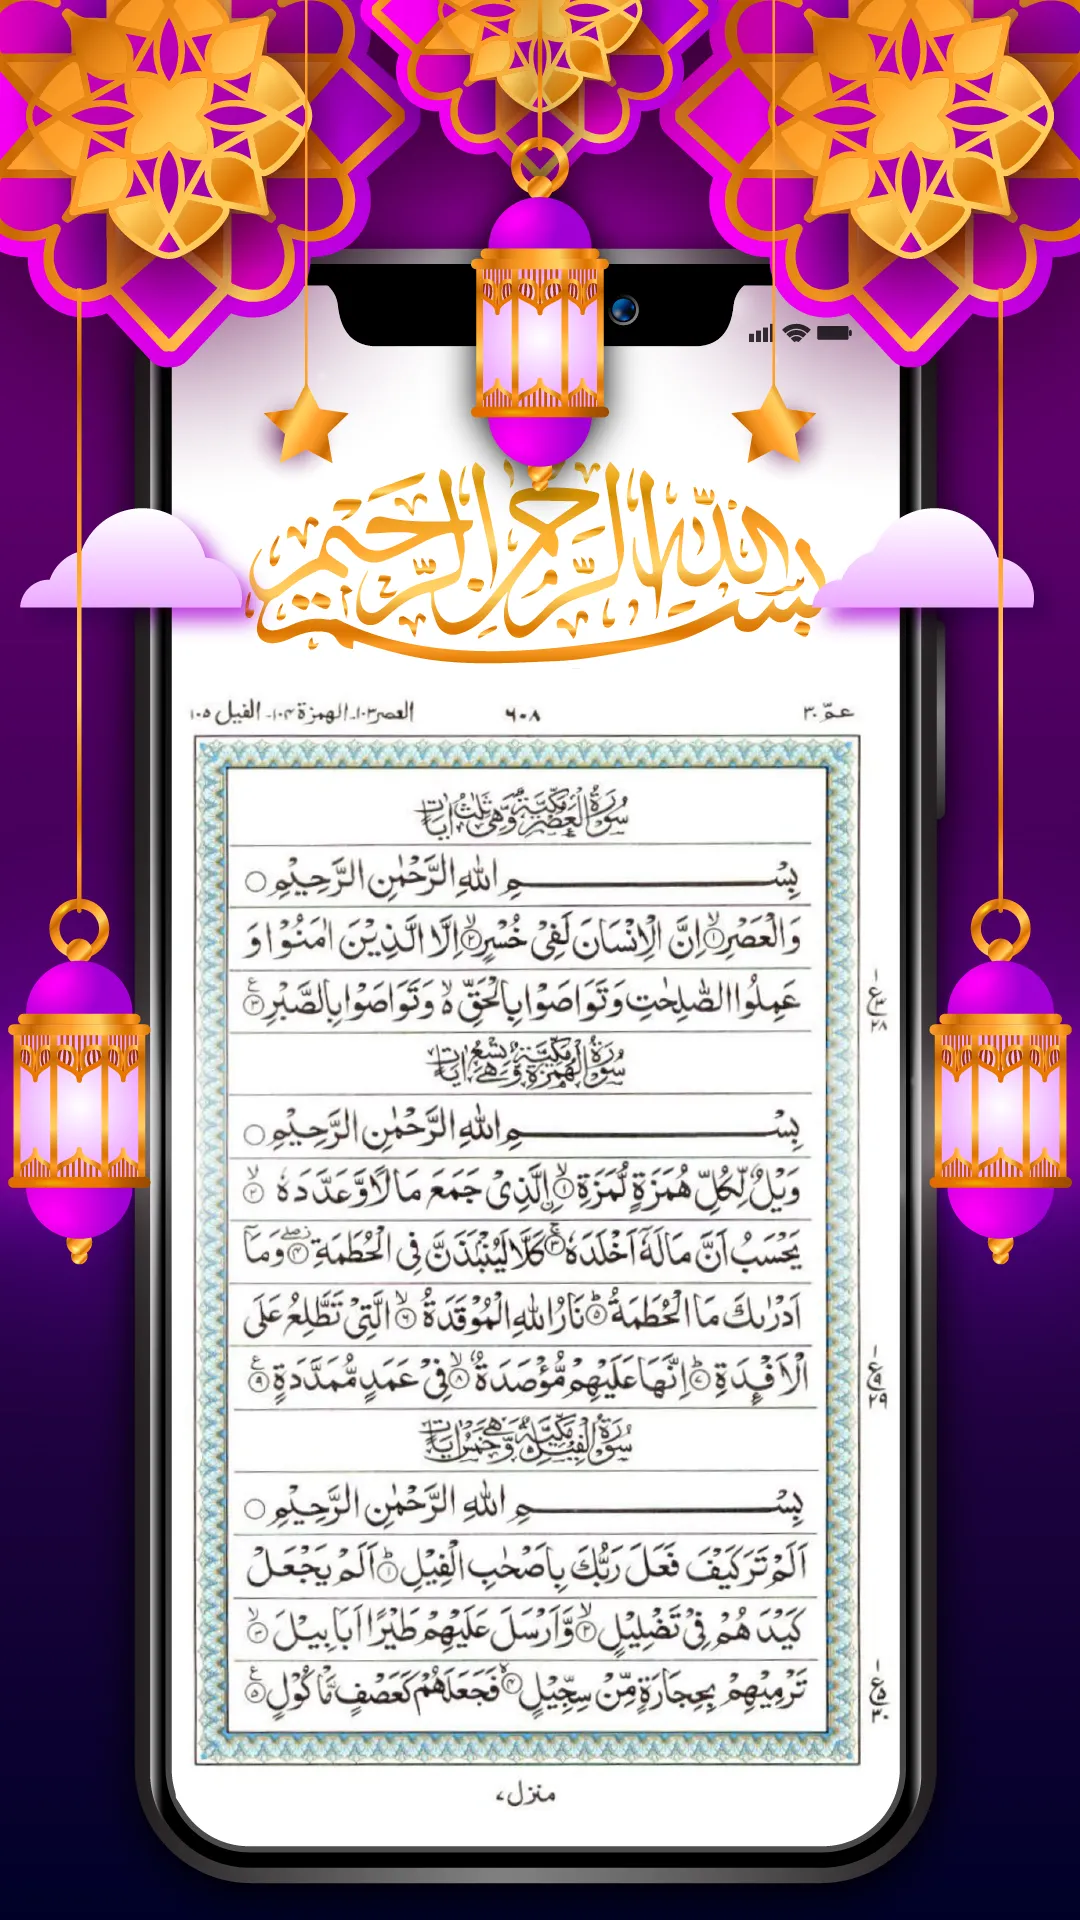 بسم الله الرحمن الرحيم
العصر ١٠٣۔ الهمزة ١٠٤۔ الفيل ١٠٥
٦٠٨
عمّ ٣٠
سُوْرَةُ الْعَصْرِ مَكِّيَّةٌ وَّهِىَ ثَلٰثُ اٰيَاتٍ
بِسْــــــــــــمِ اللّٰهِ الرَّحْمٰنِ الرَّحِيْمِ ○
وَالْعَصْرِ ۙ‏﴿۱﴾ اِنَّ الْاِنْسَانَ لَفِىْ خُسْرٍ ۙ‏﴿۲﴾ اِلَّا الَّذِيْنَ اٰمَنُوْا وَ
عَمِلُوا الصّٰلِحٰتِ وَتَوَاصَوْا بِالْحَقِّ ۙ۬ وَتَوَاصَوْا بِالصَّبْرِ ﴿۳﴾ ع
١ ع ٣ ٢٨
سُوْرَةُ الْهُمَزَةِ مَكِّيَّةٌ وَّهِىَ تِسْعُ اٰيَاتٍ
بِسْــــــــــــمِ اللّٰهِ الرَّحْمٰنِ الرَّحِيْمِ ○
وَيْلٌ لِّكُلِّ هُمَزَةٍ لُّمَزَةٍ ۙ‏﴿۱﴾ اۨلَّذِىْ جَمَعَ مَالًا وَّعَدَّدَهٗ ۙ‏﴿۲﴾
يَحْسَبُ اَنَّ مَالَهٗۤ اَخْلَدَهٗ ۚ‏﴿۳﴾ كَلَّا لَيُنْۢبَذَنَّ فِى الْحُطَمَةِ ۖ‏﴿۴﴾ وَمَاۤ
اَدْرٰىكَ مَا الْحُطَمَةُ ؕ‏﴿۵﴾ نَارُ اللّٰهِ الْمُوْقَدَةُ ۙ‏﴿۶﴾ الَّتِىْ تَطَّلِعُ عَلَى
الْاَفْـِٕدَةِ ؕ‏﴿۷﴾ اِنَّهَا عَلَيْهِمْ مُّؤْصَدَةٌ ۙ‏﴿۸﴾ فِىْ عَمَدٍ مُّمَدَّدَةٍ ﴿۹﴾ ع
١ ع ٩ ٢٩
سُوْرَةُ الْفِيْلِ مَكِّيَّةٌ وَّهِىَ خَمْسُ اٰيَاتٍ
بِسْــــــــــــمِ اللّٰهِ الرَّحْمٰنِ الرَّحِيْمِ ○
اَلَمْ تَرَ كَيْفَ فَعَلَ رَبُّكَ بِاَصْحٰبِ الْفِيْلِ ؕ‏﴿۱﴾ اَلَمْ يَجْعَلْ
كَيْدَهُمْ فِىْ تَضْلِيْلٍ ۙ‏﴿۲﴾ وَّاَرْسَلَ عَلَيْهِمْ طَيْرًا اَبَابِيْلَ ۙ‏﴿۳﴾
تَرْمِيْهِمْ بِحِجَارَةٍ مِّنْ سِجِّيْلٍ ۙ‏﴿۴﴾ فَجَعَلَهُمْ كَعَصْفٍ مَّاْكُوْلٍ ﴿۵﴾ ع
١ ع ٥ ٣٠
منزل ٧